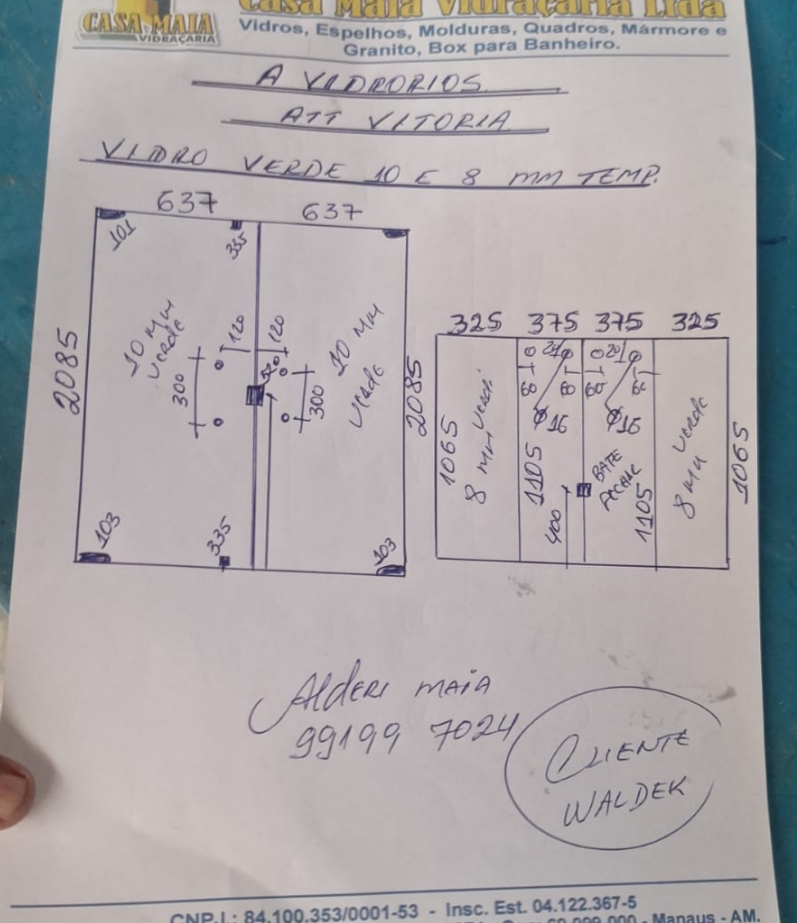 CASA MAIA
VIDRAÇARIA
Casa Maia Vidraçaria Ltda
Vidros, Espelhos, Molduras, Quadros, Mármore e
Granito, Box para Banheiro.
A VIDRORIOS
ATT VITORIA
VIDRO VERDE 10 E 8 MM TEMP.
637 637
101 335
10 MM
VERDE
120 120
10 MM
VERDE
2085
300
300
2085
103 335 103
325 375 375 325
60 60 60 60
Ø16 Ø16
1065
8 MM VERDE
1105
400
BATE
FECHE
1105
8 MM VERDE
1065
Alderi MAIA
99199 7024
CLIENTE
WALDEK
CNPJ.: 84.100.353/0001-53 - Insc. Est. 04.122.367-5
- Manaus - AM.